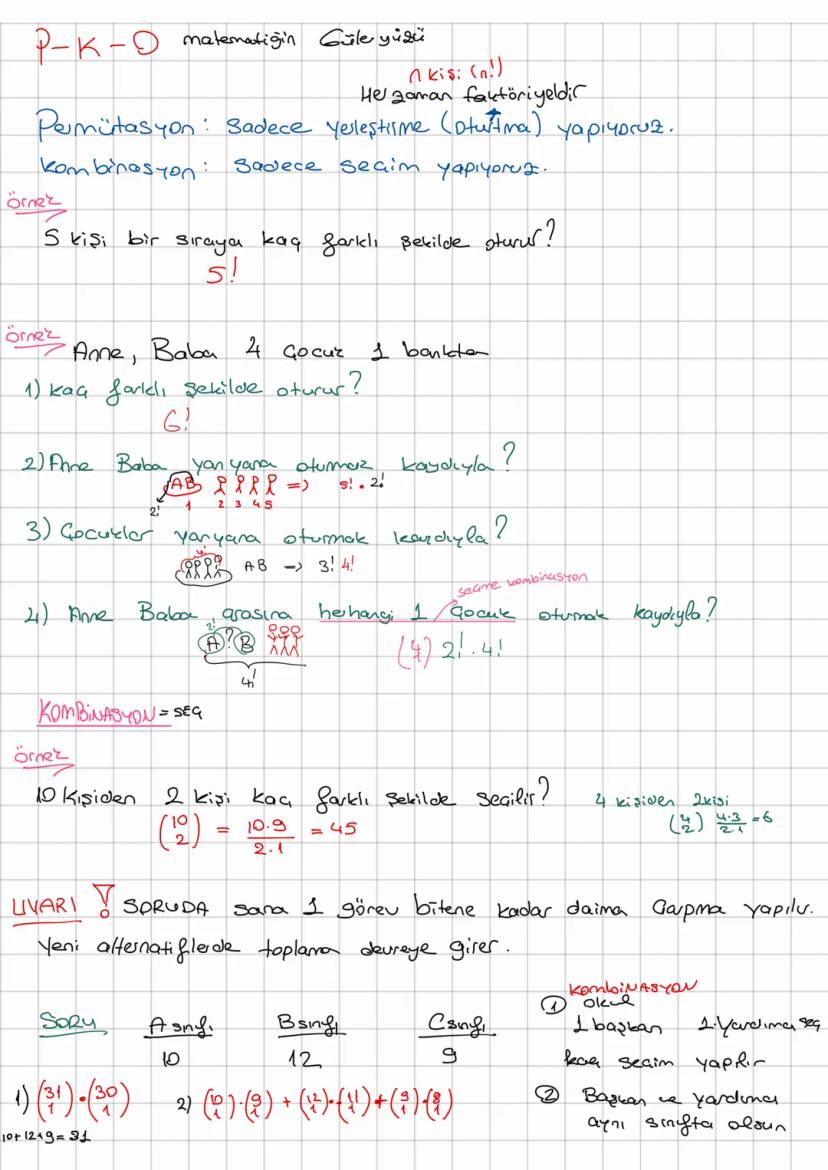 P-K-O matematiğin Güler yüzü
n kişi (n!)
Her zaman faktöriyeldir
Permütasyon: Sadece yerleştirme (oturtma) yapıyoruz.
Kombinasyon: Sadece seçim yapıyoruz.
Örnek
5 kişi bir sıraya kaç farklı şekilde oturur?
5!
Örnek Anne, Baba 4 Çocuk 1 bankta
1) Kaç farklı şekilde oturur?
6!
2) Anne Baba yan yana oturmak kaydıyla?
AB => 5! . 2!
2! 1 2 3 4 5
3) Çocuklar yanyana oturmak kaydıyla?
4! AB -> 3! 4!
seçme kombinasyon
4) Anne Baba arasına herhangi 1 Çocuk oturmak kaydıyla?
2! A ? B (4 1) 2! . 4!
4!
KOMBİNASYON = SEÇ
Örnek
10 Kişiden 2 kişi kaç farklı şekilde seçilir? 4 kişiden 2 kişi
(10 2) = 10.9 / 2.1 = 45 (4 2) 4.3 / 2.1 = 6
UYARI ! SORUDA sana 1 görev bitene kadar daima Çarpma yapılır.
Yeni alternatiflerde toplama devreye girer.
KOMBİNASYON
SORU A sınıfı B sınıfı C sınıfı
10 12 9
① okul
1 başkan 1 Yardımcı seç
kaç seçim yapılır
1) (31 1) . (30 1) 2) (10 1) . (9 1) + (12 1) . (11 1) + (9 1) . (8 1)
10+12+9=31
② Başkan ve yardımcı
aynı sınıfta olsun